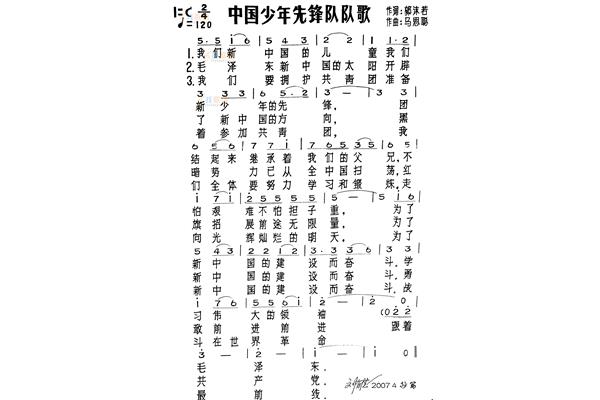 1=C 2/4 中国少年先锋队队歌 作词：郭沫若
♩=120 作曲：马思聪
5·5 i6 | 5 43 | 2 2 | 1·2
1.我们新 中国的儿 童我们
2.毛 泽 东新中国的太 阳开辟
3.我 们 要拥护共青团 准备
3 33 | 6 5·2 | 3 — | 3 3
新 少 年的先 锋， 团
了新中国的方 向， 黑
着参加共青 团， 我
结起来 继承着 我们的父 兄，不
暗势 力已从 全中国扫 荡，红
们全体要努力 学习和锻 炼，走
怕艰 难不怕担子 重， 为了
旗招 展前途无限 量， 为了
向光 辉灿烂的明 天， 为了
5 43 | 2 2 1 2 | 3·3 3 6 | 3 3
新中 国的建 设而奋 斗，学
新中 国的建 设而奋 斗，勇
新中 国的建 设而奋 斗，战
i 76 | 5 56i | 2 — | 2 0
习伟 大的领 袖
敢前 进前 进 跟着
斗在世 界革 命
3 — | 2 — | i — | i 0 ‖
毛 泽 东．
共 产 党．
最 前 线．
2007.4